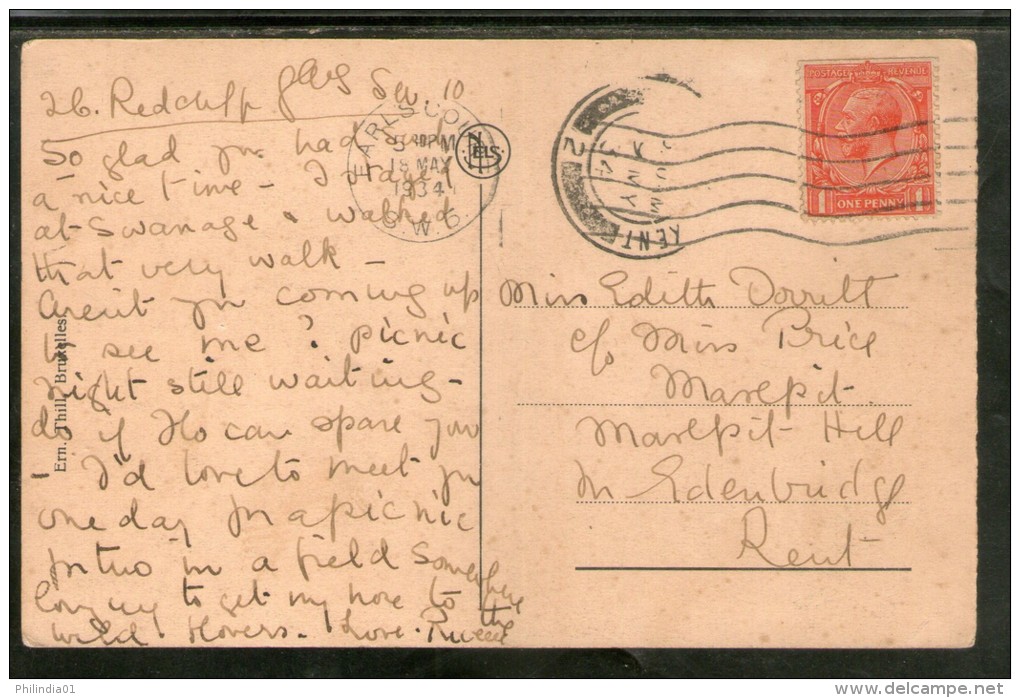 26. Redcliff Gdns S.W. 10
So glad you had
a nice time - I stayed
at Swanage & walked
that very walk -
Arent you coming up
to see me? picnic
night still waiting -
do if Flo can spare you
- I'd love to meet you
one day for a picnic
for two in a field somewhere
longing to get my nose to the
wild flowers. Love.
Ern. Thill, Bruxelles
EARLS COURT
PM
18 MAY
1934
S.W.5.
NELS
KENT
2
MY
34
POSTAGE REVENUE
1 ONE PENNY 1
Miss Edith Dorritt
c/o Miss Price
Marlpit
Marlpit Hill
Nr Edenbridge
Kent
Philindia01
www.delcampe.net